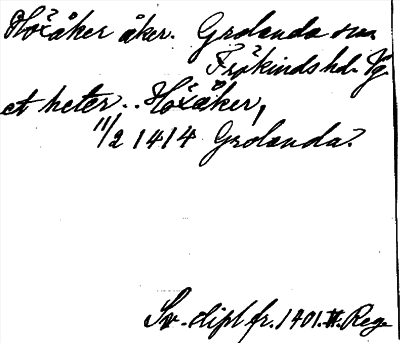 Höxåker åker. Grolanda sn
Frökinds hd. Vg
et heter.. Höxåker,
11/2 1414 Grolanda.
Sv. dipl fr. 1401. II. Reg